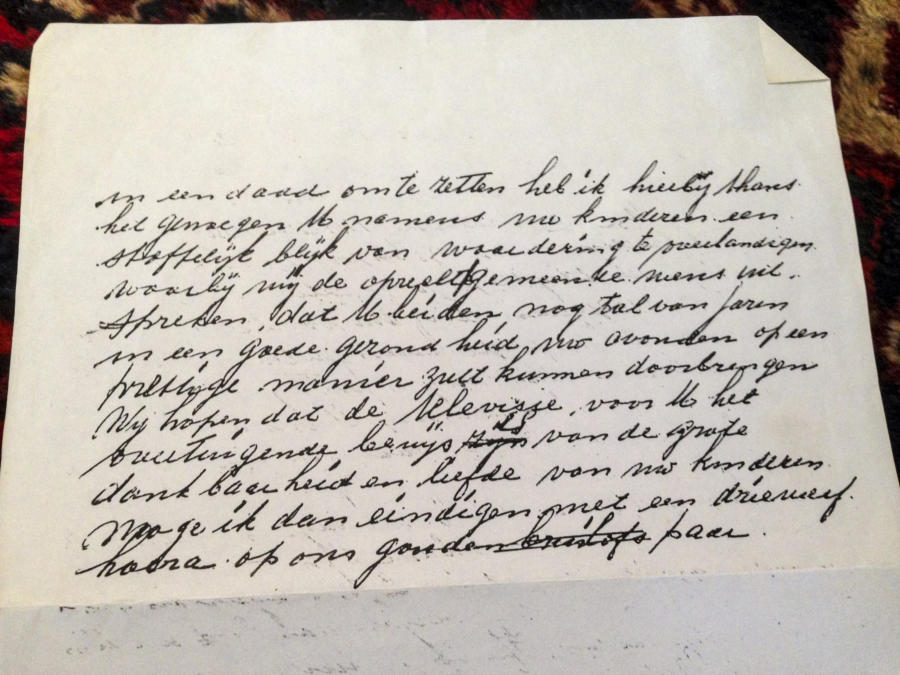 in een daad om te zetten heb ik hierbij thans
het genoegen U namens uw kinderen een
stoffelijk blijk van waardering te overhandigen
waarbij wij de oprecht gemeende wens uit-
spreken, dat U beiden nog tal van jaren
in een goede gezondheid, uw avonden op een
prettige manier zult kunnen doorbrengen
Wij hopen dat de televisie, voor U het
overtuigende bewijs zijn is van de grote
dankbaarheid en liefde van uw kinderen
Moge ik dan eindigen met een drievoerf.
hoera op ons gouden bruilofts paar.